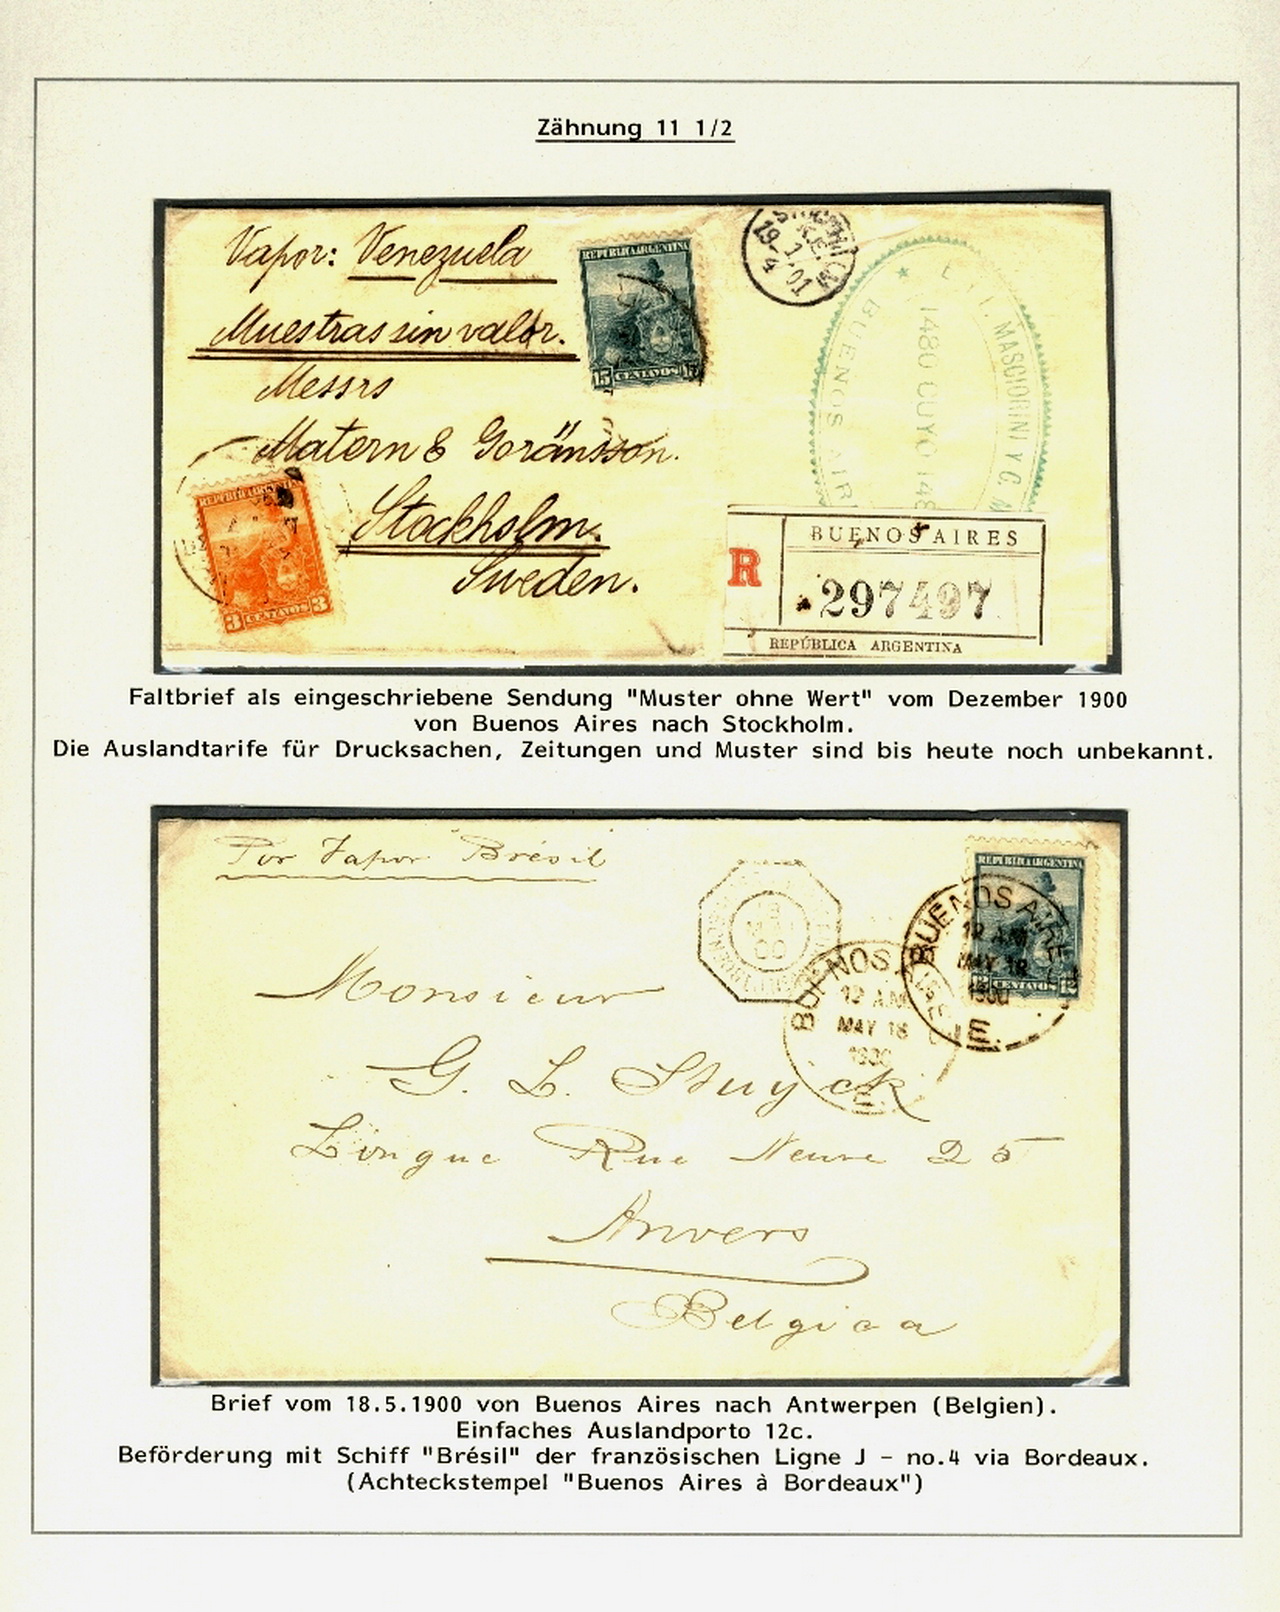 Zähnung 11 1/2
Vapor: Venezuela
Muestras sin valor.
Messrs
Matern & Goränsson.
Stockholm.
Sweden.
REPUBLICA ARGENTINA
15 CENTAVOS 15
REPUBLICA ARGENTINA
3 CENTAVOS 3
19 1 01
4
MASCIORINI Y C.
1480 CUYO 148
BUENOS AIR
R
BUENOS AIRES
297497
REPÚBLICA ARGENTINA
Faltbrief als eingeschriebene Sendung "Muster ohne Wert" vom Dezember 1900
von Buenos Aires nach Stockholm.
Die Auslandtarife für Drucksachen, Zeitungen und Muster sind bis heute noch unbekannt.
Por Vapor Brésil
REPUBLICA ARGENTINA
12 CENTAVOS 12
BUENOS AIRES
12 AM
MAY 18
1900
E.
BUENOS
12 AM
MAY 18
1900
E.
Monsieur
G. L. Stuyck
Longue Rue Neuve 25
Anvers
Belgica
Brief vom 18.5.1900 von Buenos Aires nach Antwerpen (Belgien).
Einfaches Auslandporto 12c.
Beförderung mit Schiff "Brésil" der französischen Ligne J - no.4 via Bordeaux.
(Achteckstempel "Buenos Aires à Bordeaux")